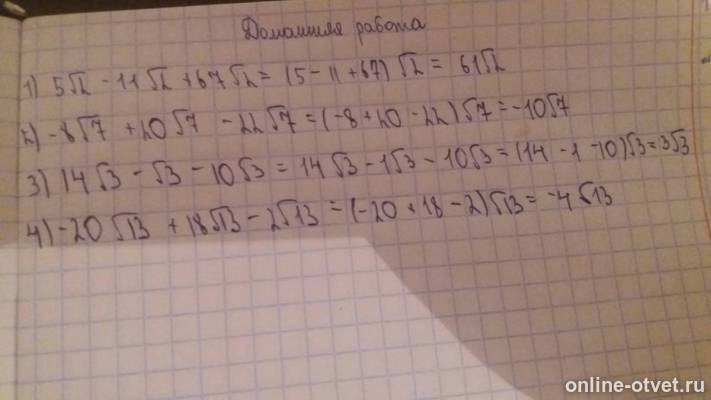 Домашняя работа
1) 5√2 - 11√2 + 67√2 = (5 - 11 + 67)√2 = 61√2
2) -8√7 + 20√7 - 22√7 = (-8 + 20 - 22)√7 = -10√7
3) 14√3 - √3 - 10√3 = 14√3 - 1√3 - 10√3 = (14 - 1 - 10)√3 = 3√3
4) -20√13 + 18√13 - 2√13 = (-20 + 18 - 2)√13 = -4√13
online-otvet.ru